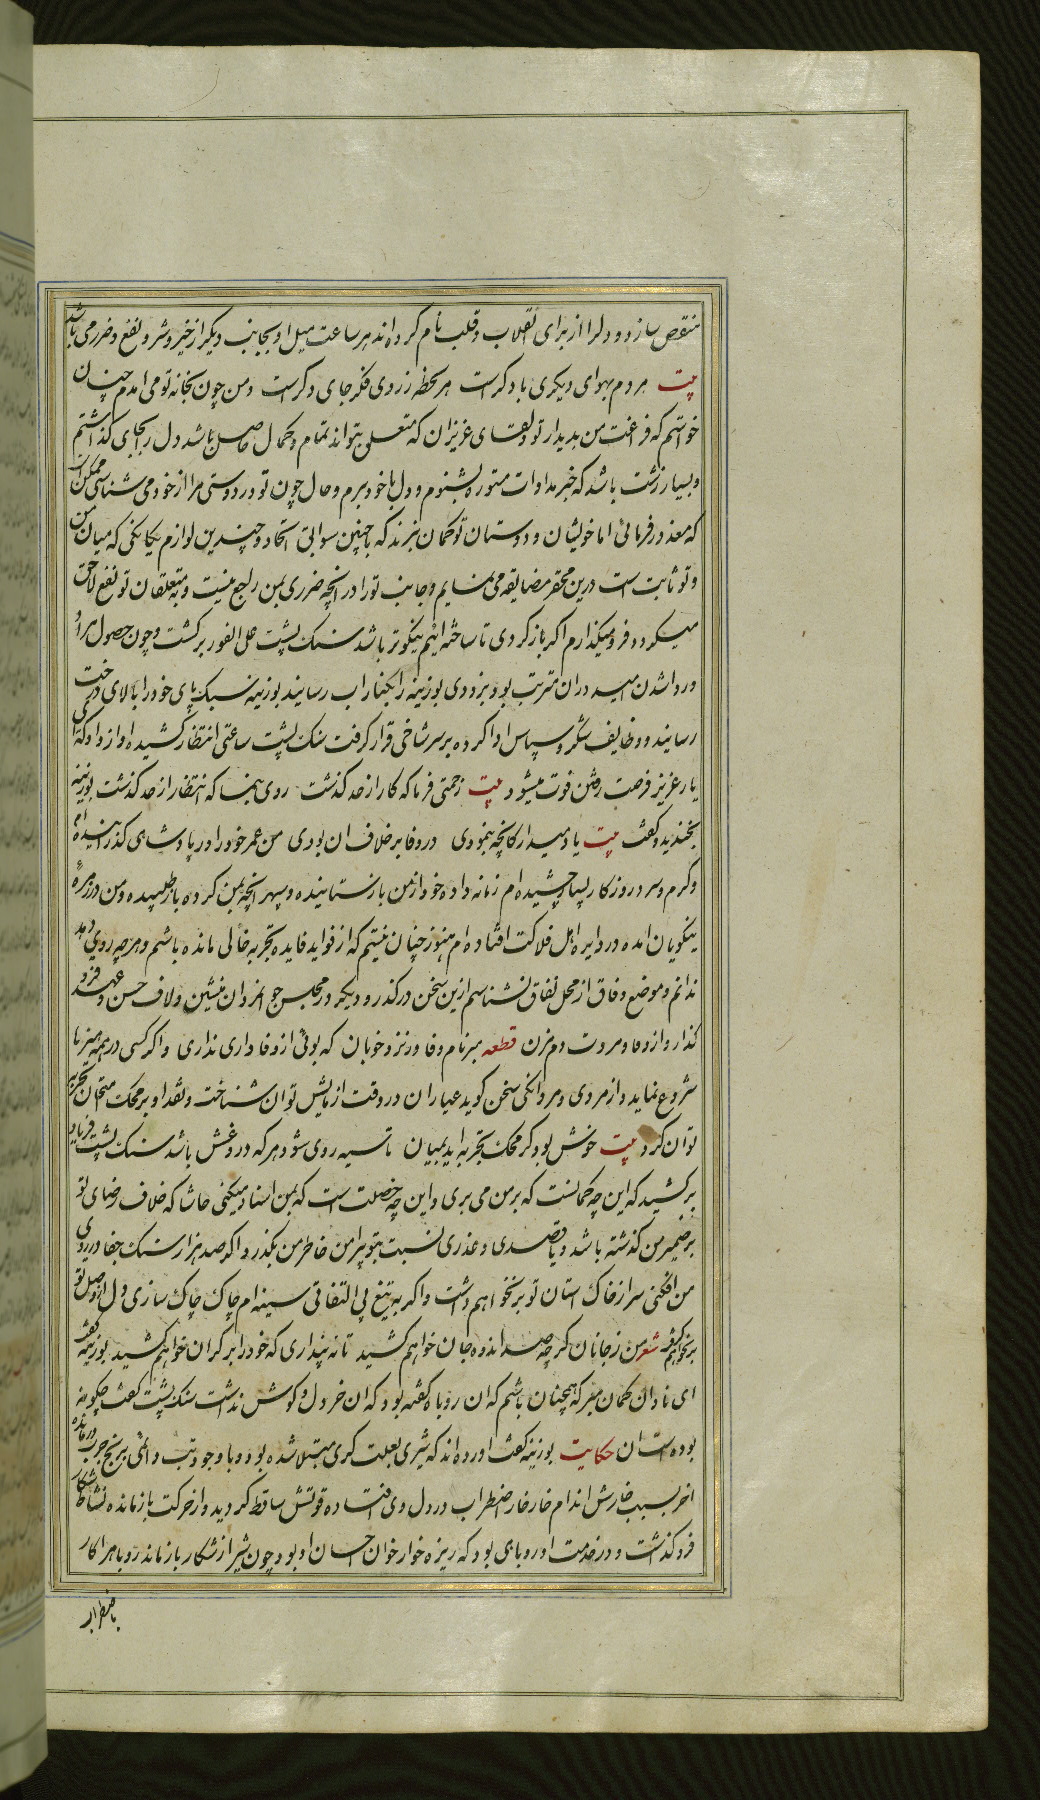 منقص سازد و دلرا از برای انقلاب و قلب نام کرده اند هر ساعت میل او بجانب دیگر از خیر و شر و نفع و ضرر می باشد
بیت هر دم بهوای دیگری یاد کرست هر لحظه زروی فکر جای دکرست و من چون بخانه تو می امدم چنان
خواستم که فراغت من بدیدار تو و لقای عزیزان که متعلق بتواند تمام و کمال حاصل باشد دل را بجای کذاشتم
و بسیار زشت باشد که خبر مداوات مستوره بشنوم و دل با خود نبرم و حال چون تو در دوستی مرا از خود می شناسی ممکن است
که معذور فرمائی اما خویشان و دوستان تو کمان برند که با چنین سوابق اتحاد و چندین لوازم یکانکی که میان من
و تو ثابت است درین محقر مضایقه می نمایم و جانب تو را در انچه ضرری بمن راجع نیست و بمتعلقان تو نفع لاحق
میکردد فرو میکذارم اکر باز کردی تا ساخته ایم نیکوتر باشد سنک پشت علی الفور بر کشت و چون حصول مراد
ورد اشدن امید در ان مترتب بود بزودی بوزینه را بکنار اب رسانید بوزینه سبک پای خود را بالای درخت
رسانید و وظایف شکر و سپاس ادا کرده بر سر شاخی قرار کرفت سنک پشت ساعتی انتظار کشیده اواز داد که ای
یار عزیز فرصت رفتن فوت میشود بیت زحمتی فرما که کار از حد کذشت روی بنما که انتظار از حد کذشت بوزینه
بخندید و کفت بیت یاد میدار کانچه بنمودی در وفا بر خلاف ان بودی من عمر خود را در پادشاهی کذرانیده ام
و کرم و سرد روزکار بسیار چشیده ام زمانه داده خود از من باز ستانیده و سپهر انچه بمن کرده باز طلبیده و من در زمره
ینکویان امده در دایره اهل فلاکت افتاده ام هنوز چنان نیستم که از فواید فایده تجربه خالی مانده باشم و هر چه روی دهد
ندانم و موضع وفاق از محل نفاق نشناسم ازین سخن درکذر و دیکر در مجلس جوانمردان منشین و لاف حسن عهد فرو
کذار و از وفا و مروت دم مزن قطعه مبر نام وفا ور نزد خوبان که بوئی از وفاداری نداری و اکر کسی در همه هنرها
شروع نماید و از مردی و مردانکی سخن کوید عیار ان در وقت ازمایش توان شناخت و نقد او بر محک امتحان تجربه
توان کرد بیت خوش بود کر محک تجربه اید بمیان تا سیه روی شود هر که در وغش باشد سنک پشت فریاد
برکشید که این چه کمانست که بر من می بری و این چه خصلت است که بمن اسناد میکنی حاشا که خلاف رضای تو
بر ضمیر من کذشته باشد و یا قصدی و غدری نسبت بتو پیرامن خاطر من بکذرد اکر صد هزار سنک جفا در روی
من افکنی سر از خاک استان تو بر نخواهم داشت و اکر بتیغ بی التفاتی سینه ام چاک چاک سازی دل از وصل تو
بر نخواهم کفت شعر من ز جانان کر چه صد اندوه جان خواهم کشید تا نه پنداری که خود را بر کران خواهم کشید بوزینه کفت
ای نادان کمان مبر که همچنان باشم که ان روباه کفته بود که ان خر دل و کوش نداشت سنک پشت کفت چکونه
بوده است ان حکایت بوزینه کفت اورده اند که شیری بعلت کری مبتلا شده بود و با وجود تب دائمی برنج جرب درمانده
اخر بسبب خارش اندام خار خار اضطراب در دل وی افتاده قوتش ساقط کردید و از حرکت باز مانده نشاط شکار
فرو کذاشت و در خدمت او روباهی بود که ریزه خوار خوان احسان او بود چون شیر از شکار باز ماند روباه را کار
باضطرار